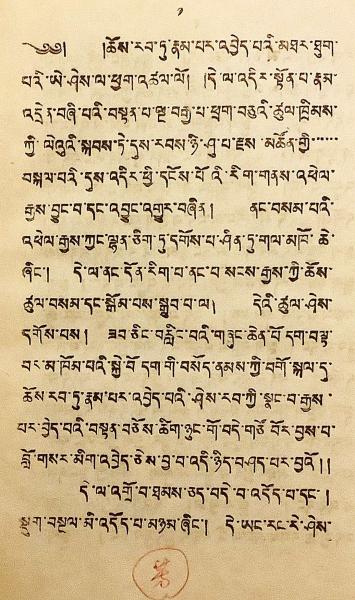 ༄༅། །ཆོས་རབ་ཏུ་རྣམ་པར་འབྱེད་པའི་མཐར་ཐུག་
པའི་ཡེ་ཤེས་ལ་ཕྱག་འཚལ་ལོ། །དེ་ལ་འདིར་སྟོན་པ་རྣམ་
འདྲེན་བཞི་པའི་བསྟན་པ་ལྔ་བརྒྱ་པ་ཕྲག་བཅུའི་ཚུལ་ཁྲིམས་
ཀྱི་ལེའུའི་སྐབས་ཏེ་དུས་རབས་ཉི་ཤུ་པ་རྫས་མཚོན་གྱི་
བསྐལ་བའི་དུས་འདིར་ཕྱི་དངོས་པོའི་རིག་གནས་འཕེལ་
རྒྱས་བྱུང་བ་དང་འབྱུང་འགྱུར་བཞིན། ནང་བསམ་པའི་
འཕེལ་རྒྱས་ཀྱང་ལྷན་ཅིག་ཏུ་དགོས་པ་ཤིན་ཏུ་གལ་མཁོ་ཆེ་
ཞིང་། དེ་ལ་ནང་དོན་རིག་པ་ནང་པ་སངས་རྒྱས་ཀྱི་ཆོས་
ཚུལ་བསམ་དང་སྒོམ་པས་སྒྲུབ་པ་ལ། དེའི་ཚུལ་ཤེས་
དགོས་པས། ཟབ་ཅིང་བརླིང་བའི་གཞུང་ཆེན་པོ་དག་བལྟ་
བར་མ་ཁོམ་པའི་སྐྱེ་བོ་དག་གི་བསོད་ནམས་ཀྱི་བགོ་སྐལ་དུ་
ཆོས་རབ་ཏུ་རྣམ་པར་འབྱེད་པའི་ཤེས་རབ་ཀྱི་སྣང་བ་རྒྱས་
པར་བྱེད་པའི་བསྟན་བཅོས་ཚིག་ཉུང་གོ་བདེ་གཙོ་བོར་བྱས་པ་
བློ་གསར་མིག་འབྱེད་ཅེས་བྱ་བ་འདི་ཉིད་བཤད་པར་བྱའོ།།
དེ་ལ་འགྲོ་བ་ཐམས་ཅད་བདེ་བ་འདོད་པ་དང་།
སྡུག་བསྔལ་མི་འདོད་པ་མཉམ་ཞིང་། དེ་ཡང་རང་རེ་ཤེས་